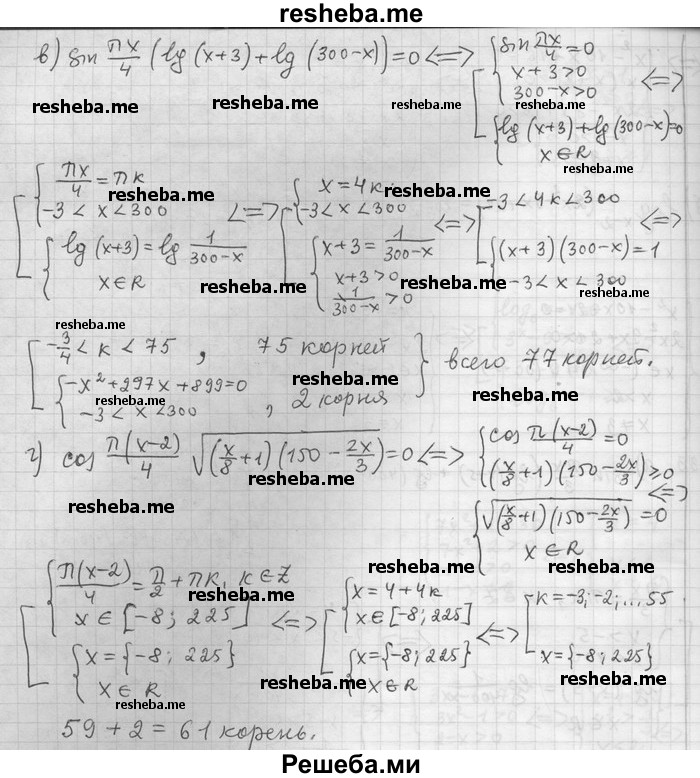 resheba.me
в) sin πx/4 (lg (x+3) + lg (300-x)) = 0 <=> [ { sin πx/4 = 0
x+3>0 <=>
300-x>0
resheba.me resheba.me resheba.me resheba.me
{ lg (x+3) + lg (300-x) = 0
x ∈ R
resheba.me
[ { πx/4 = πk
-3 < x < 300
{ lg (x+3) = lg 1/(300-x)
x ∈ R
<=> [ { x = 4k
-3 < x < 300
{ x+3 = 1/(300-x)
x+3>0
1/(300-x) > 0
<=> [ -3 < 4k < 300
{ (x+3)(300-x) = 1
-3 < x < 300
<=>
resheba.me resheba.me resheba.me
resheba.me resheba.me resheba.me
resheba.me
[ -3/4 < k < 75, 75 корней
{ -x² + 297x + 899 = 0
-3 < x < 300, 2 корня } всего 77 корней.
resheba.me resheba.me resheba.me
г) cos π(x-2)/4 √((x/8+1)(150-2x/3)) = 0 <=> [ { cos π(x-2)/4 = 0
(x/8+1)(150-2x/3) ≥ 0
<=>
{ √((x/8+1)(150-2x/3)) = 0
x ∈ R
resheba.me resheba.me resheba.me
resheba.me
[ { π(x-2)/4 = π/2 + πk, k ∈ Z
x ∈ [-8; 225]
{ x = {-8; 225}
x ∈ R
<=> [ { x = 4+4k
x ∈ [-8; 225]
{ x = {-8; 225}
x ∈ R
<=> [ k = -3; -2; ... 55
x = {-8; 225}
resheba.me resheba.me resheba.me
resheba.me resheba.me resheba.me
59 + 2 = 61 корень.
Решеба.ми